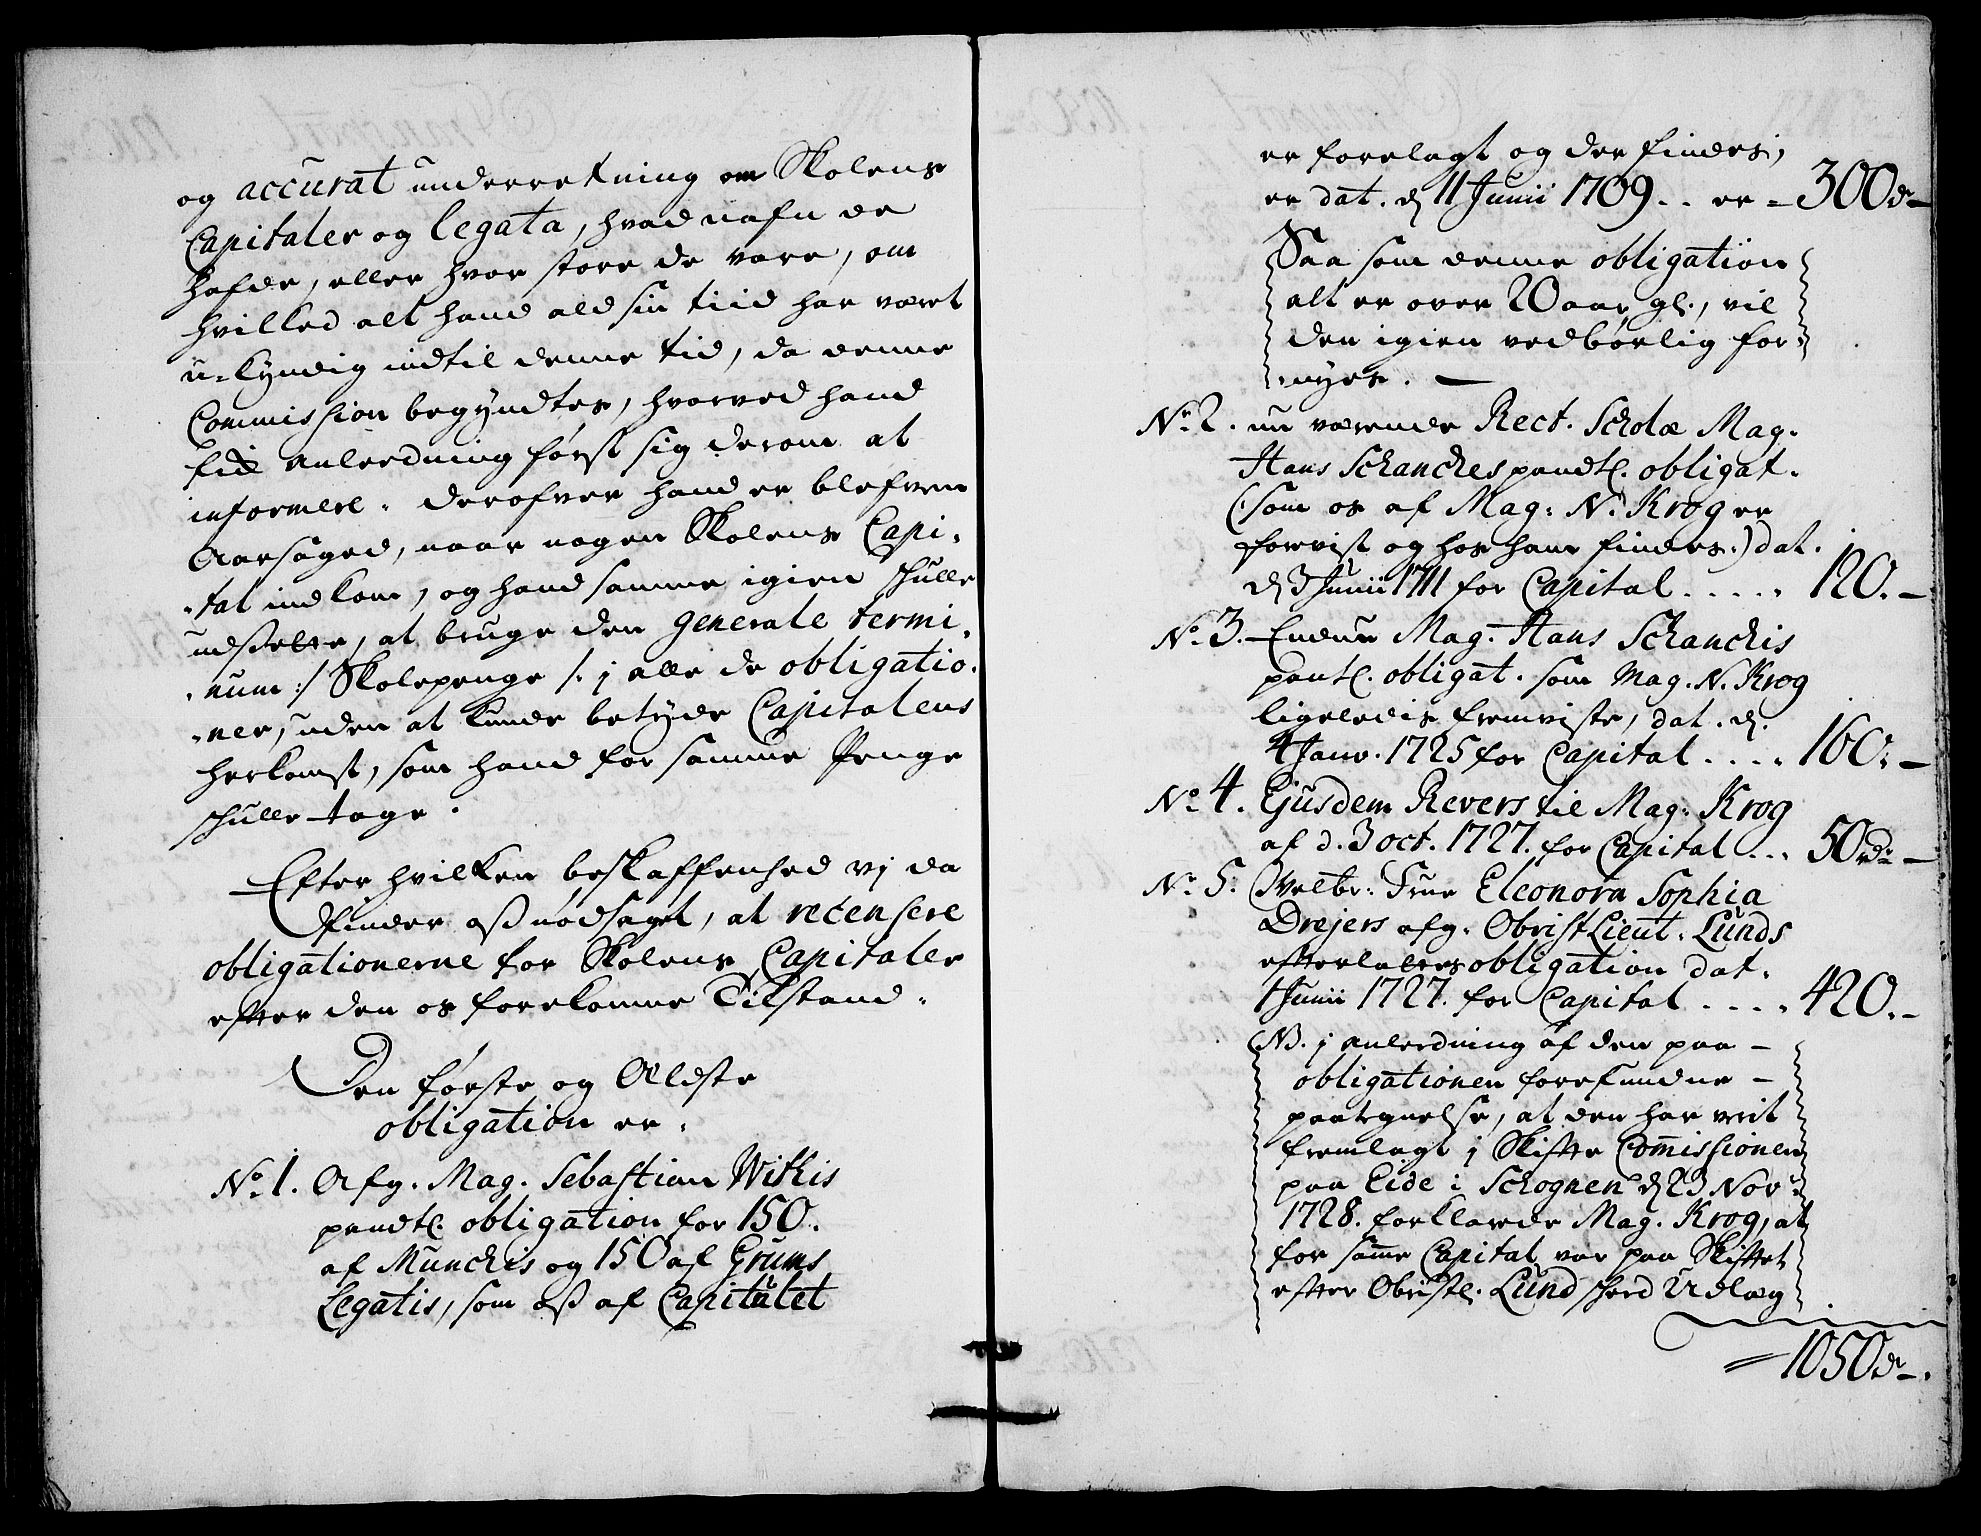 og accurat underretning om Skolens
Capitaler og legata, hvad nafn de
hafde, eller hvor store de vare, om
hvilled alt hand ald sin tiid har været
u-kyndig indtil denne tid, da denne
Commission begyndtes, hvorved hand
fik anleedning først sig derom at
informere. derofver hand er blefven
Aarsaged, naar nogen Skolens Capi-
-tal ind kom, og hand samme igien skulle
udsætte, at bruge den generale termi-
-num :/ Skolepenge /: j alle de obligatio-
-ner, uden at kunde betyde Capitalens
herkomst, som hand for samme Penge
skulle tage.
Efter hvilken beskaffenhed vj da
finder oß nødsaget, at recensere
obligationerne for Skolens Capitaler
efter den os forekomne Tilstand.
Den første og Ældste
obligation er.
No. 1. Afg. Mag. Sebastian Withis
pandtl. obligation for 150.
af Munchis og 150 af Grums
Legatis, som oß af Capitulet
er forelagt og der findes,
er dat. d 11 Junii 1709 .. er - 300 dr -
Saa som denne obligation
alt er over 20 aar gl., vil
den igien vedbørlig for-
-nyes. -
No. 2. nu værende Rect. Scholæ Mag.
Hans Schanches pandtl. obligat.
(:som os af Mag: N. Krog er
forevist og hos ham findes:) dat.
d 3 Junii 1711 for Capital ..... 120. -
No. 3. Endnu Mag. Hans Schanchis
pantl. obligat. som Mag. N. Krog
ligeledis fremviste, dat. d.
4 Janv. 1725 for Capital .... 160: -
No. 4. Ejusdem Revers til Mag: Krog
af d. 3 oct. 1727. for Capital ... 50 rdr -
No. 5. Velbr: Frue Eleonora Sophia
Drejers afg. Obrist Lieut. Lunds
efterlattes obligation dat.
1 Junii 1727. for Capital .... 420. -
NB. j anleedning af den paa -
obligationen forefundne -
paategnelse, at den har verit
fremlagt j Skifte Commissionen
paa Eide i Schognen d 23 Nov:
1728. forklarede Mag. Krog, at
for samme Capital var paa Skiftet
efter Obristl. Lund skeed Udlæg
= 1050 dr -.